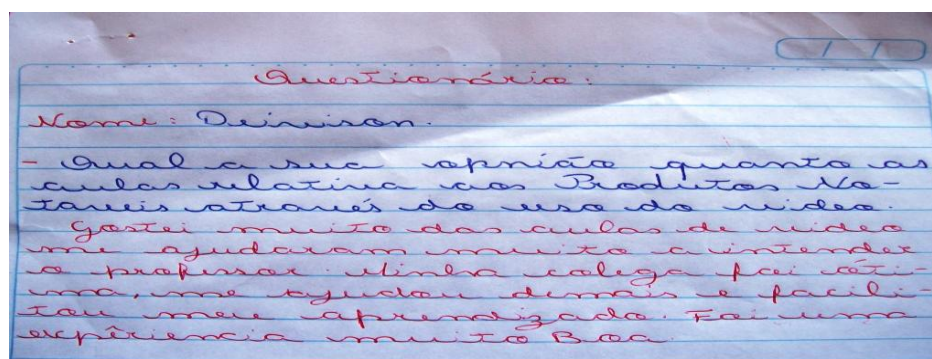 Questionário:
Nome: Deivison.
- Qual a sua opnião quanto as
aulas relativa aos Produtos No-
taveis através do uso do video.
Gostei muito das aulas de video
me ajudaram muito a intender
o professor. Minha colega foi óti-
ma, me ajudou demais e facili-
tou meu aprendizado. Foi uma
expêriencia muito Boa